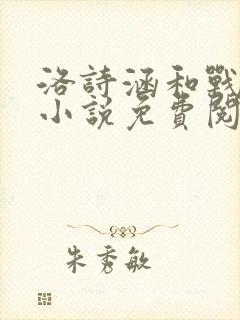 洛詩涵和戰
小說免費閱
朱秀敏